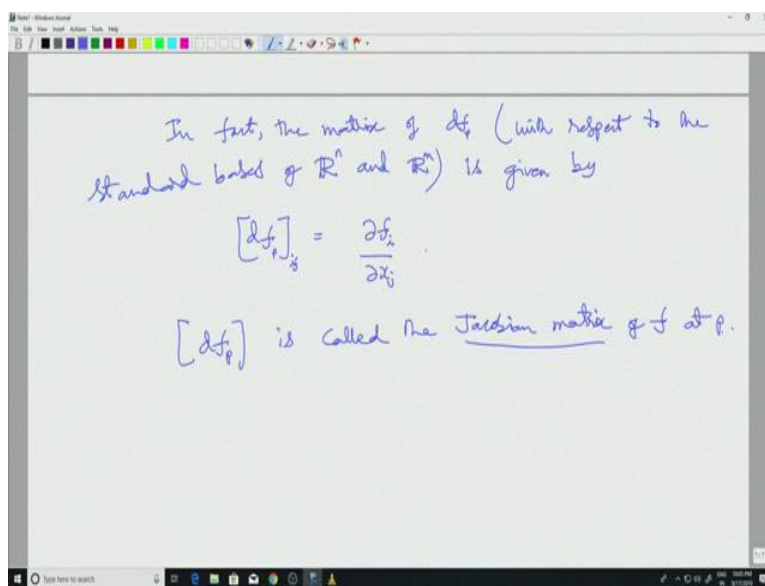 Note1 - Windows Journal
File Edit View Insert Actions Tools Help
In fact, the matrix of df_p (with respect to the
standard bases of ℝ^n and ℝ^m) is given by
[df_p]_ij = ∂f_i / ∂x_j .
[df_p] is called the Jacobian matrix of f at p.
Type here to search